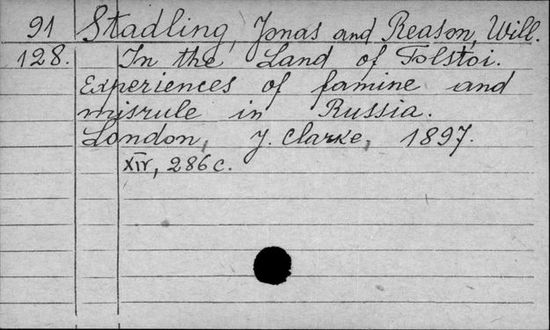 91 Stadling, Jonas and Reason, Will.
128. In the Land of Tolstoi.
Experiences of famine and
misrule in Russia.
London, J. Clarke, 1897.
XIV, 286 c.